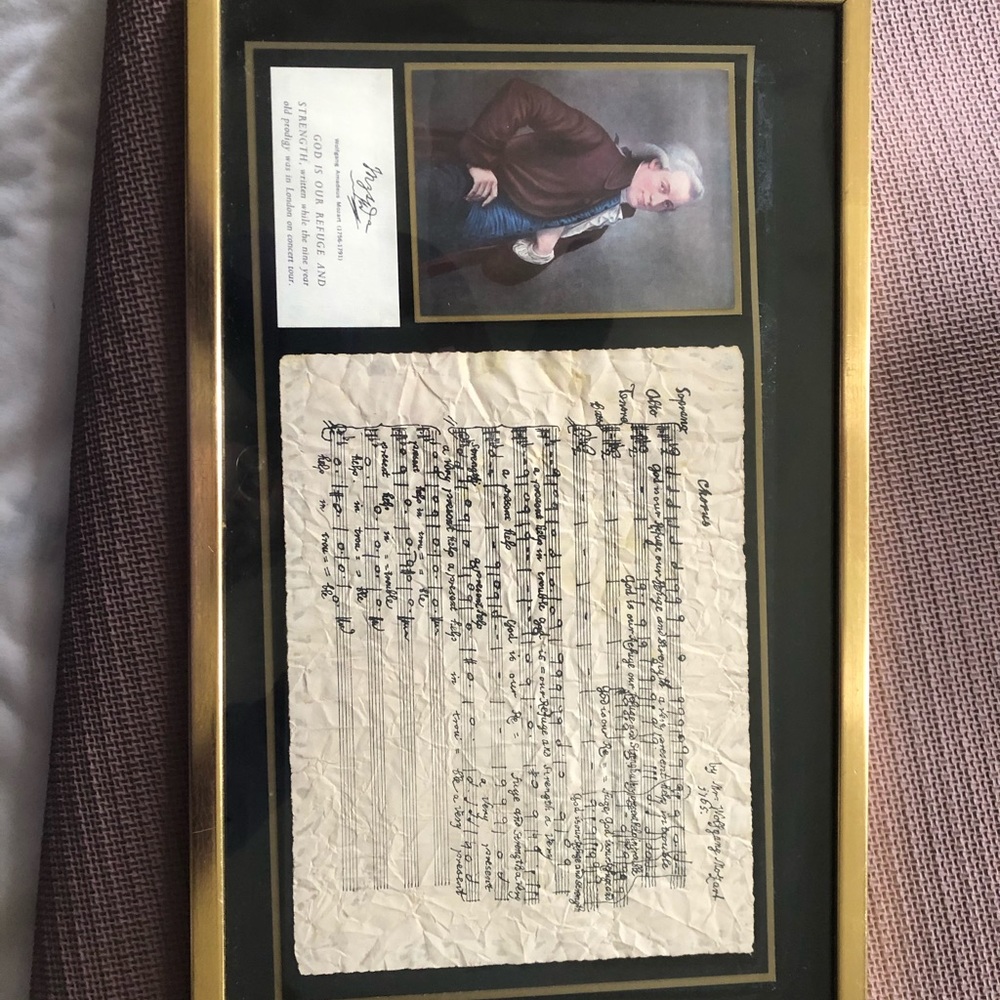 Wolfgang Amadeus Mozart (1756-1791)
GOD IS OUR REFUGE AND
STRENGTH, written while the nine year
old prodigy was in London on concert tour.
Chorus
by Mr. Wolfgang Mozart
1765.
Soprano
Alto
Tenore
Basso
God is our Refuge our Refuge and Strength a very present help in trouble
God is our Refuge our Refuge and Strength a very present help in trouble
God is our Re = = fuge God is our Refuge and
God is our Refuge and Strength
a present help in trouble God is = our Refuge and Strength a Very
a present help God is our Re = fuge and Strength a Very
a present help a Very present
Strength
a Very present help a present help in trou = ble a Very present
present help in trou = = ble
present help in = = trouble
help in trou = = ble
help in trou = = ble